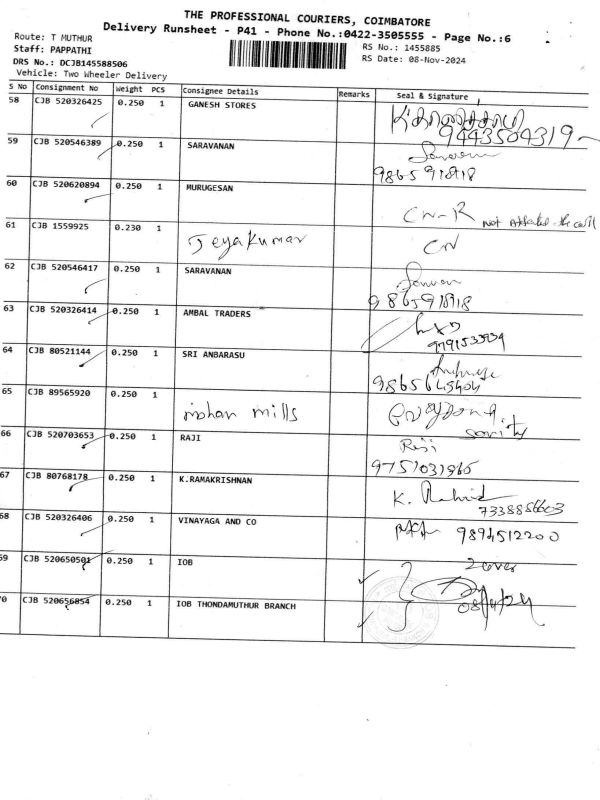 THE PROFESSIONAL COURIERS, COIMBATORE
Delivery Runsheet - P41 - Phone No.:0422-3505555 - Page No.:6
Route: T MUTHUR
RS No.: 1455885
Staff: PAPPATHI
RS Date: 08-Nov-2024
DRS No.: DCJB145588506
Vehicle: Two Wheeler Delivery
S No Consignment No Weight PCS Consignee Details Remarks Seal & Signature
58 CJB 520326425 0.250 1 GANESH STORES
9443504319
59 CJB 520546389 0.250 1 SARAVANAN
9865918918
60 CJB 520620894 0.250 1 MURUGESAN
CN-R not the call
61 CJB 1559925 0.230 1 Jeyakumar CN
62 CJB 520546417 0.250 1 SARAVANAN
9865918918
63 CJB 520326414 0.250 1 AMBAL TRADERS
64 CJB 80521144 0.250 1 SRI ANBARASU
65 CJB 89565920 0.250 1 mohan mills
66 CJB 520703653 0.250 1 RAJI
Raji
67 CJB 80768178 0.250 1 K.RAMAKRISHNAN
K.
7338886603
68 CJB 520326406 0.250 1 VINAYAGA AND CO
9894512200
69 CJB 520650501 0.250 1 IOB
70 CJB 520656854 0.250 1 IOB THONDAMUTHUR BRANCH
08/11/24